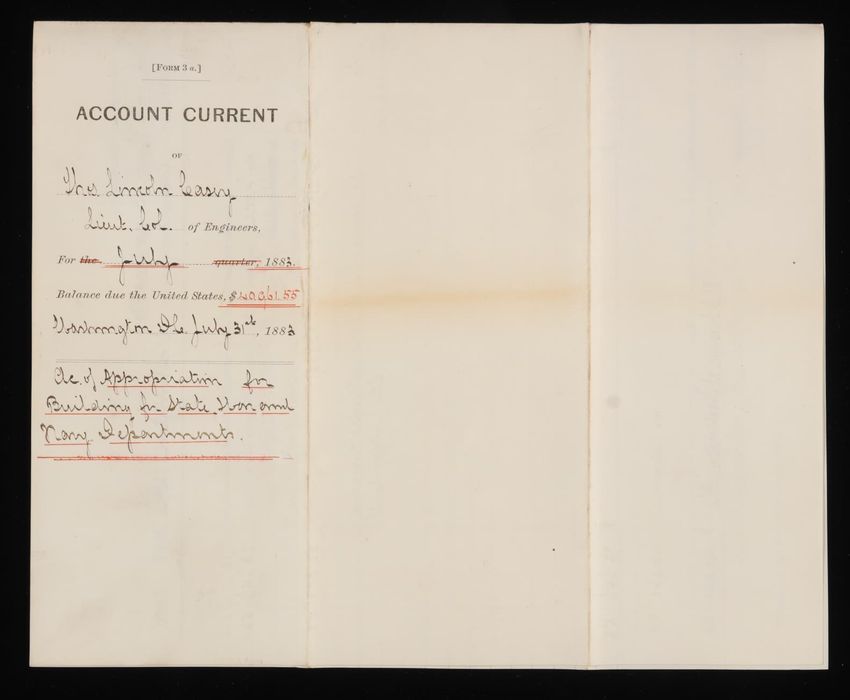 [FORM 3 a.]
ACCOUNT CURRENT
OF
Thos Lincoln Casey
Lieut. Col. of Engineers,
For the July quarter, 1883.
Balance due the United States, $
Washington D.C. July 31st, 1883
Ac. of Appropriation for
Building for State War and
Navy Departments.